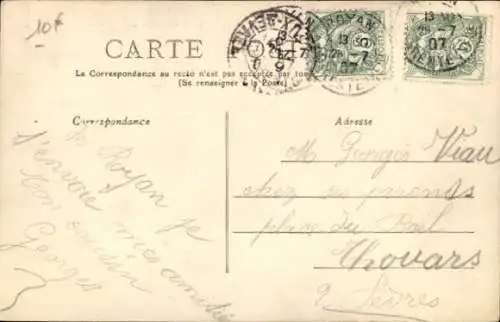 10f
CARTE
La Correspondance au recto n'est pas acceptée par tous
(Se renseigner à la Poste)
ROYAN
13
7
07
13
7
07
Correspondance
Adresse
de Royan je
t'envoie mes amitiés
ton cousin
Georges
M Georges Viau
chez ses parents
place du
Thouars
2 Sèvres